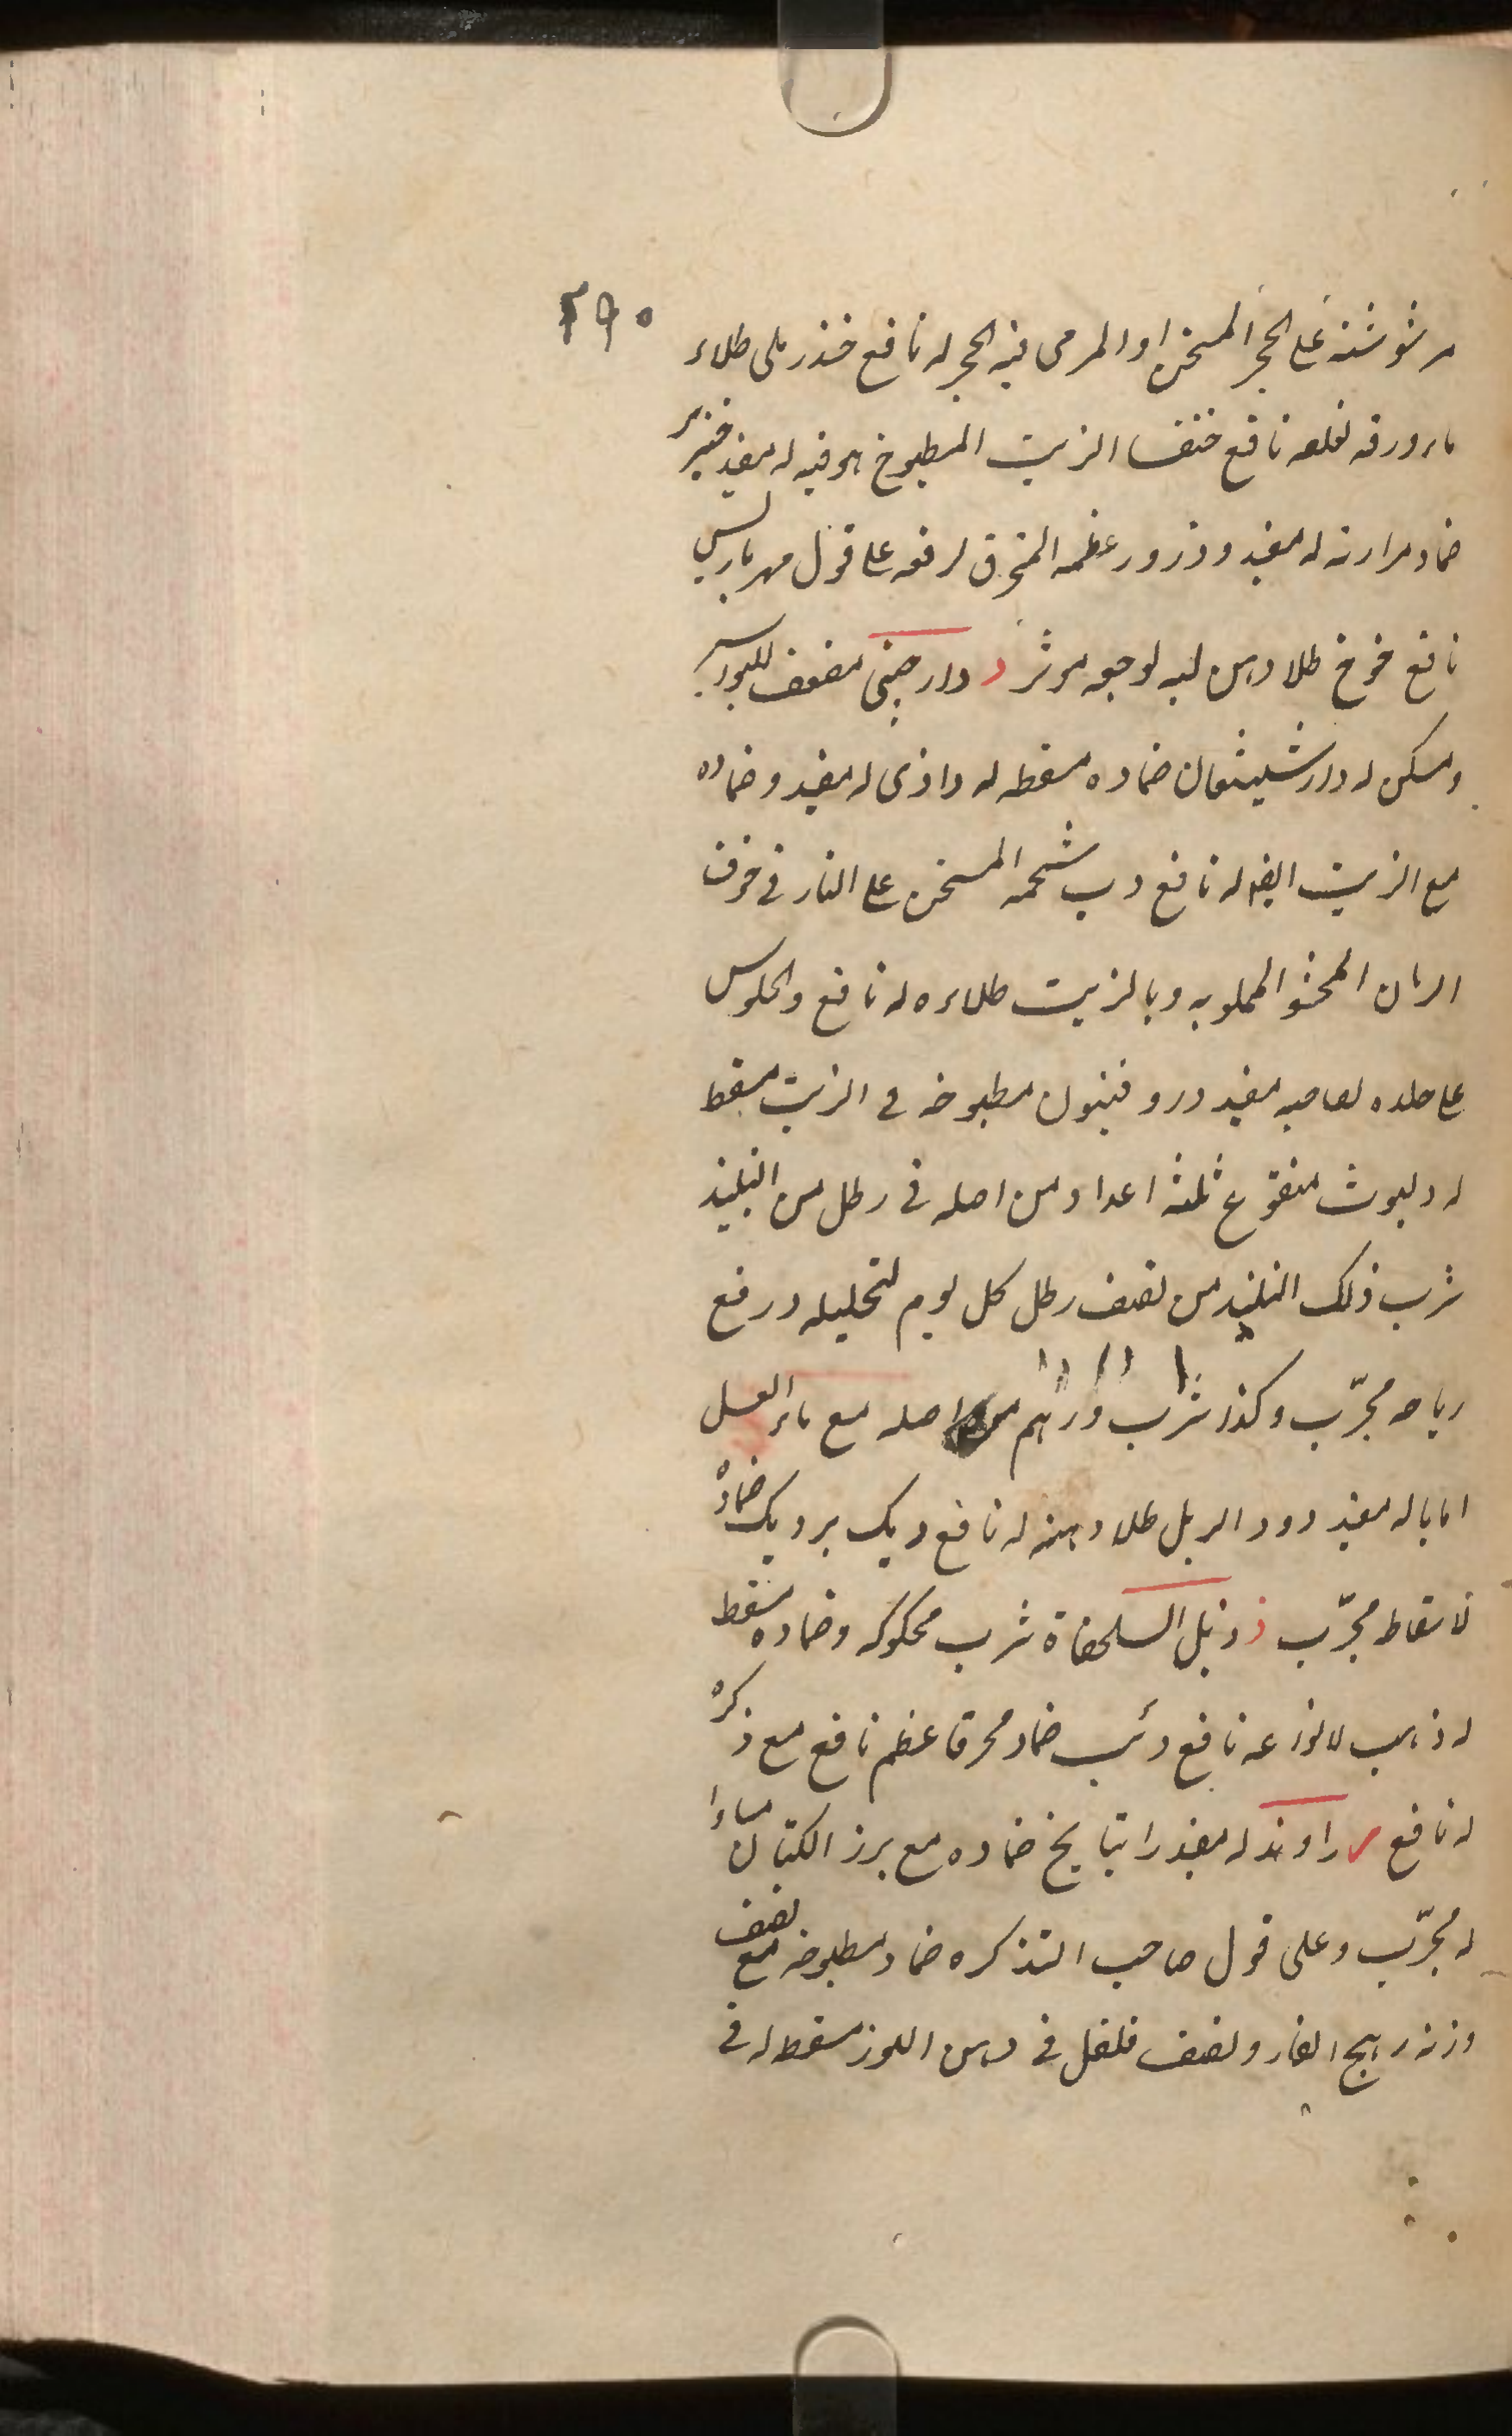 ٢٩٠
مرشوشته على الحجر المسخن او المرمى فيه الحجر له نافع خنذريلى طلاء
ماء ورقه لقلعه نافع خنفسا الزيت المطبوخ هو فيه له مفيد خنزير
ضماد مرارته له مفيد وذرور عظمه المحرق لرفعه على قول مهرياريس
نافع خوخ طلا دهن لبه لوجعه موثر د دارصينى مضعف للبواسير
ومسكن له دارشيشعان ضماده مسقط له داذى له مفيد وضماده
مع الزيت ايضا له نافع دب شحمه المسخن على النار فى خزف
الرمان المحشو المملو به وبالزيت طلاءه له نافع والجلوس
على جلده لصاحبه مفيد دروفنيون مطبوخه فى الزيت مسقط
له دلبوث منقوع ثلثة اعداد من اصله فى رطل من النبيذ
شرب ذلك النبيذ من نصف رطل كل يوم لتحليله ورفع
رياحه مجرّب وكذا شرب درهم من اصله مع ماء العسل
اماباله مفيد دود الزبل طلا دهنه له نافع ديك برديك ضماده
لاسقاط مجرّب ذ ذبل السلحفاة شرب محكوكه وضماده مسقط
له ذهب لانواعه نافع ذئب ضماد محرقا عظم نافع مع ذكره
له نافع ر راوند له مفيد راتيانج ضماده مع بزر الكتان مساوا
له مجرّب وعلى قول صاحب التذكره ضماد مطبوخه مع نصف
وزنه رهج الفار ونصف فلفل فى دهن اللوز مسقط له فى